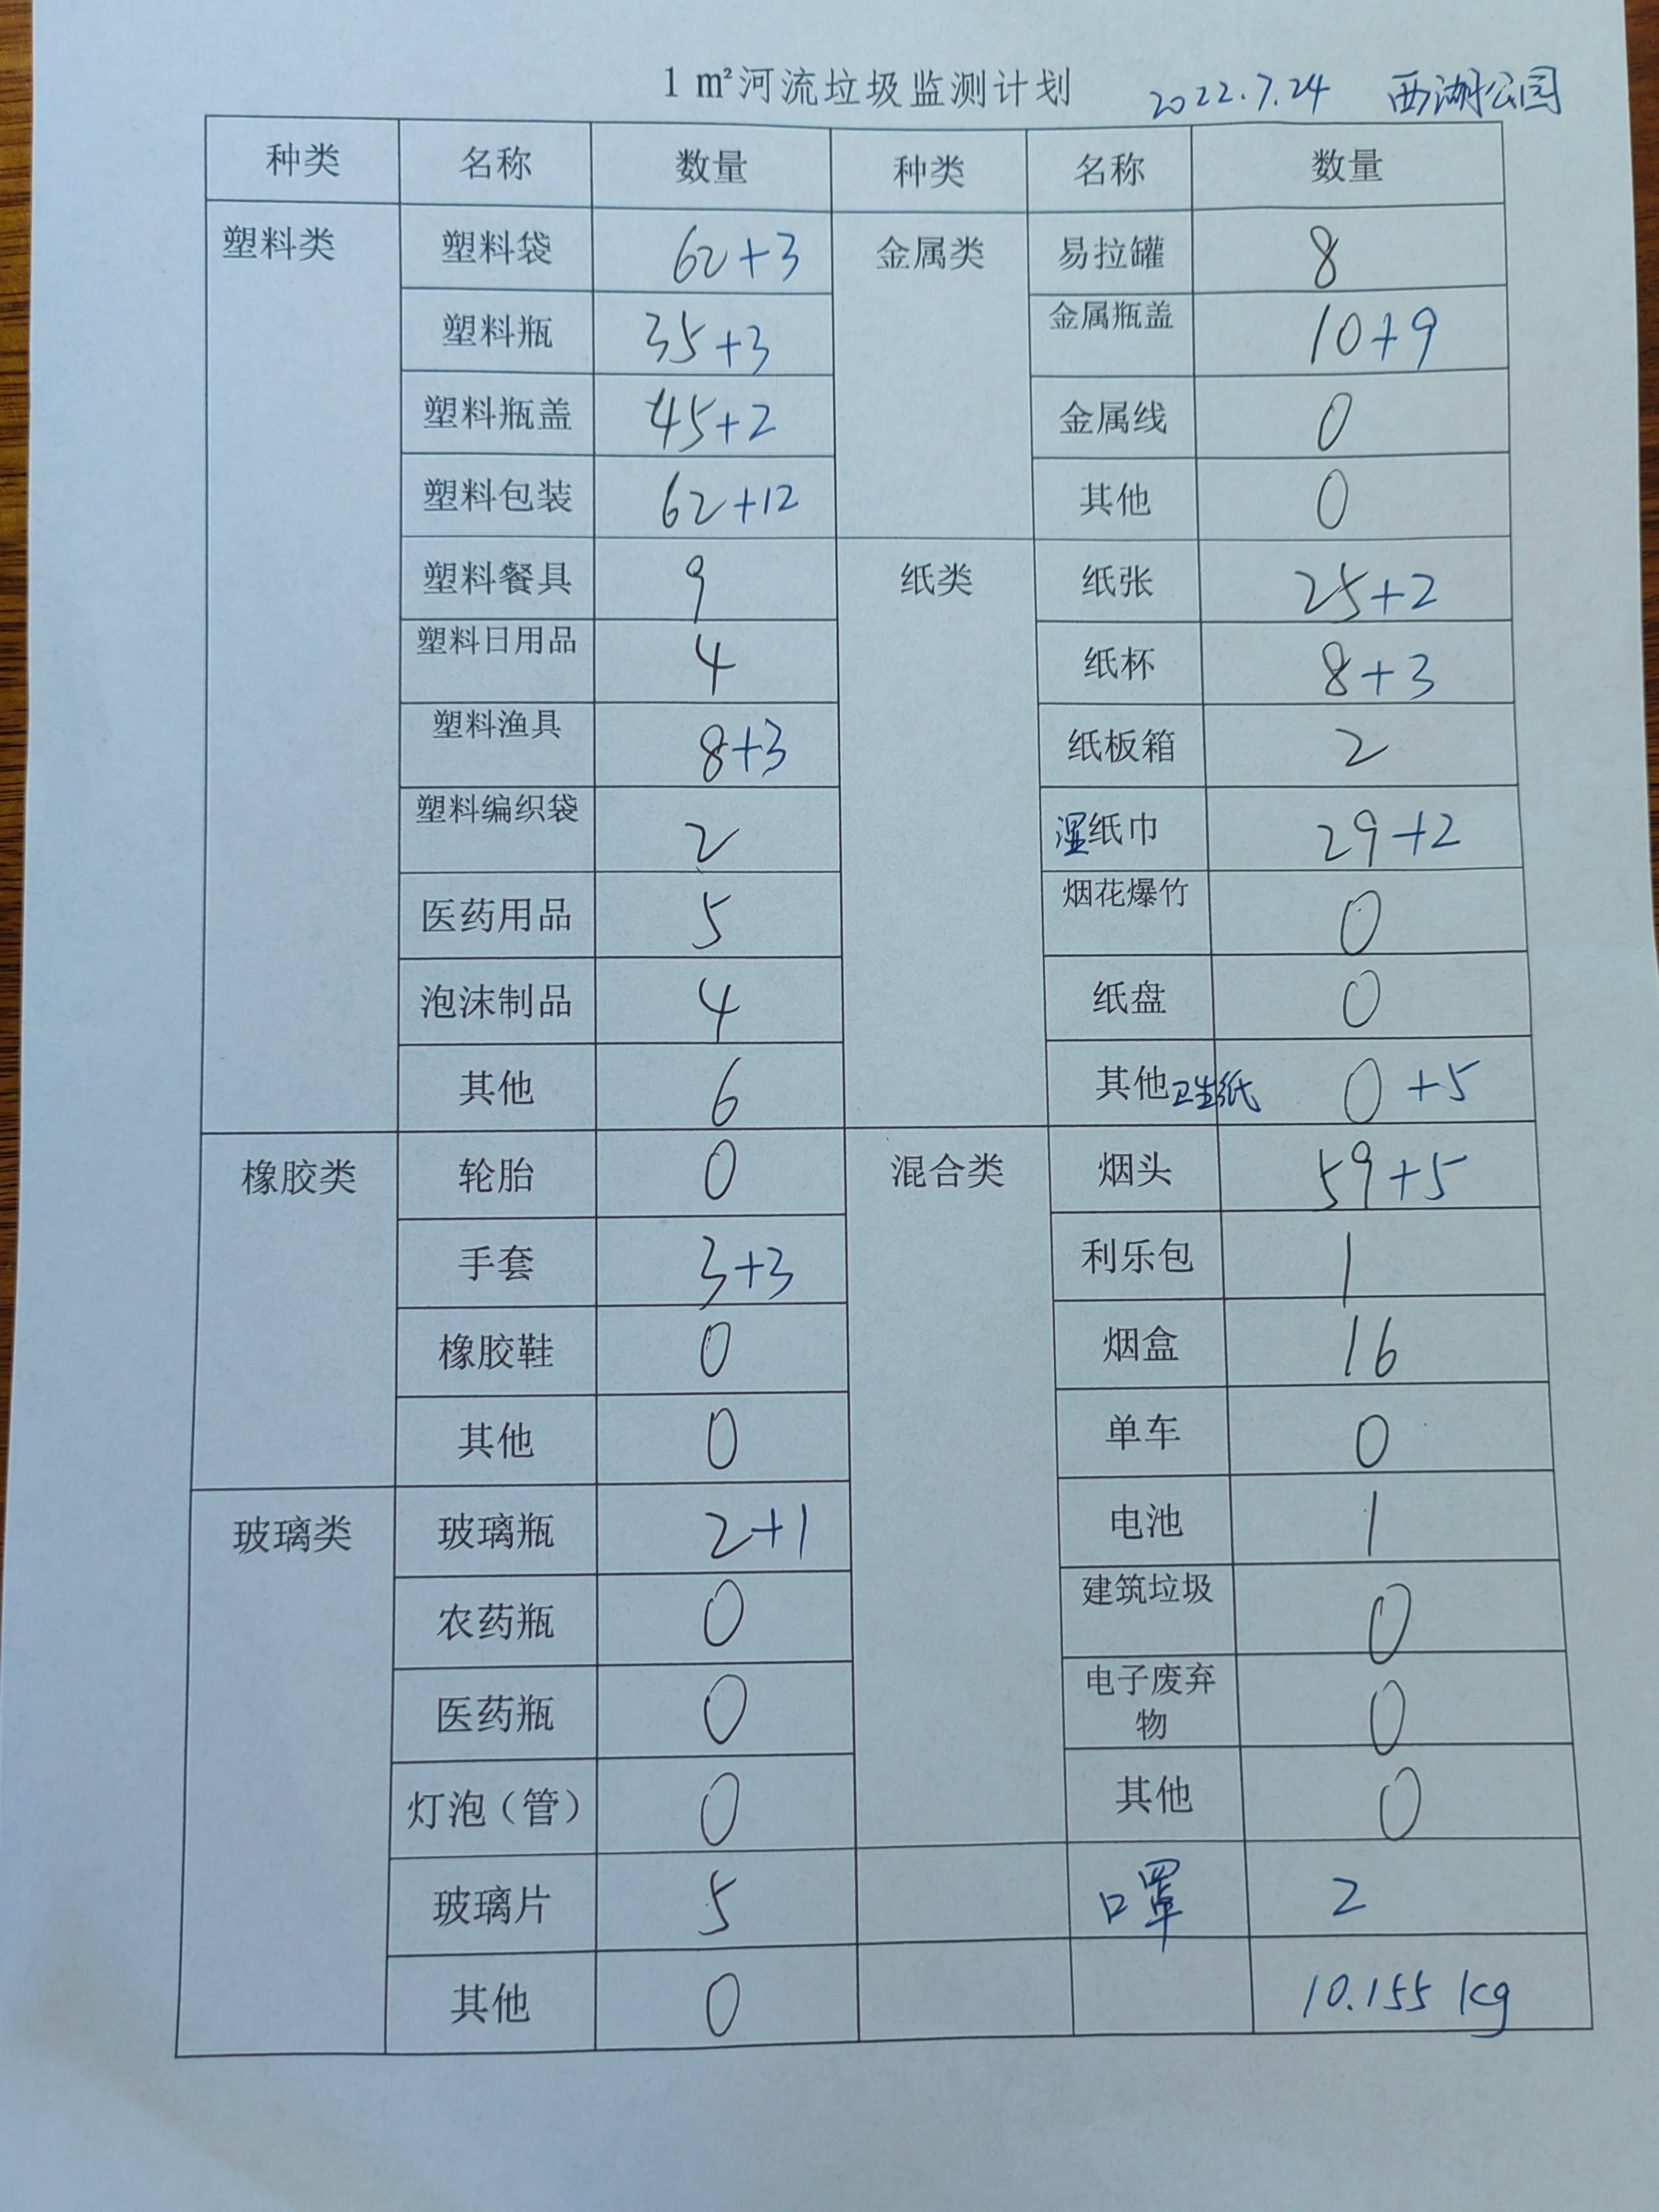 1 m²河流垃圾监测计划 2022.7.24 西湖公园
种类 名称 数量 种类 名称 数量
塑料类 塑料袋 62+3 金属类 易拉罐 8
塑料瓶 35+3 金属瓶盖 10+9
塑料瓶盖 45+2 金属线 0
塑料包装 62+12 其他 0
塑料餐具 9 纸类 纸张 25+2
塑料日用品 4 纸杯 8+3
塑料渔具 8+3 纸板箱 2
塑料编织袋 2 湿纸巾 29+2
医药用品 5 烟花爆竹 0
泡沫制品 4 纸盘 0
其他 6 其他卫生纸 0+5
橡胶类 轮胎 0 混合类 烟头 59+5
手套 3+3 利乐包 1
橡胶鞋 0 烟盒 16
其他 0 单车 0
玻璃类 玻璃瓶 2+1 电池 1
农药瓶 0 建筑垃圾 0
医药瓶 0 电子废弃
物 0
灯泡（管） 0 其他 0
玻璃片 5 口罩 2
其他 0 10.155 kg